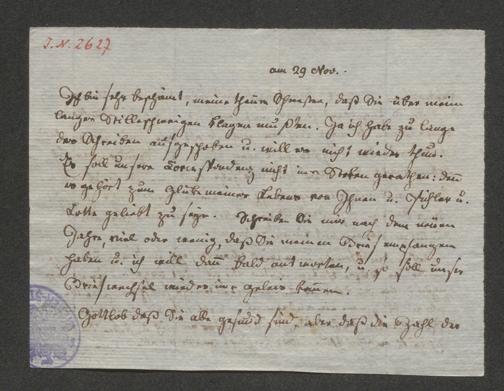 J. N. 2627
am 29 Nov.
Ich bin sehr beschämt, meine theure Schwester, daß Sie über mein
langes Stillschweigen klagen mußten. Ja ich habe zu lange
das Schreiben aufgeschoben u. will es nicht wieder thun.
Es soll unsere Correspondenz nicht ins Stoken gerathen: denn
es gehört zum Glük meines Lebens von Ihnen u. u.
Lotte geliebt zu seyn. Schreiben Sie mir nach dem neuen
Jahre, viel oder wenig, daß Sie meinen Brief empfangen
haben u. ich will dann bald antworten, u. so soll unser
Briefwechsel wieder ins kommen.
Gottlob daß Sie alle gesund sind, aber daß die Zahl der